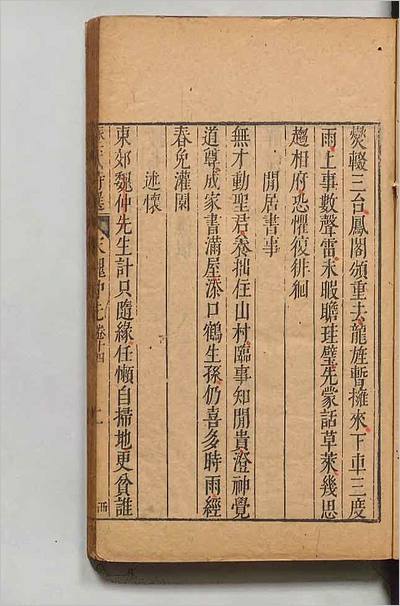 爕輟三台鳳閣頒重去龍旌暫擁來下車三度
雨上事數聲雷未暇瞻珪璧先蒙話草萊幾思
趨相府恐懼復徘徊
閒居書事
無才動聖君養拙在山村臨事知閒貴澄神覺
道尊成家書滿屋添口鶴生孫仍喜多時雨經
春免灌園
述懷
東郊魏仲先生計只隨緣任懶自掃地更貧誰
宋魏仲先 卷十四
二